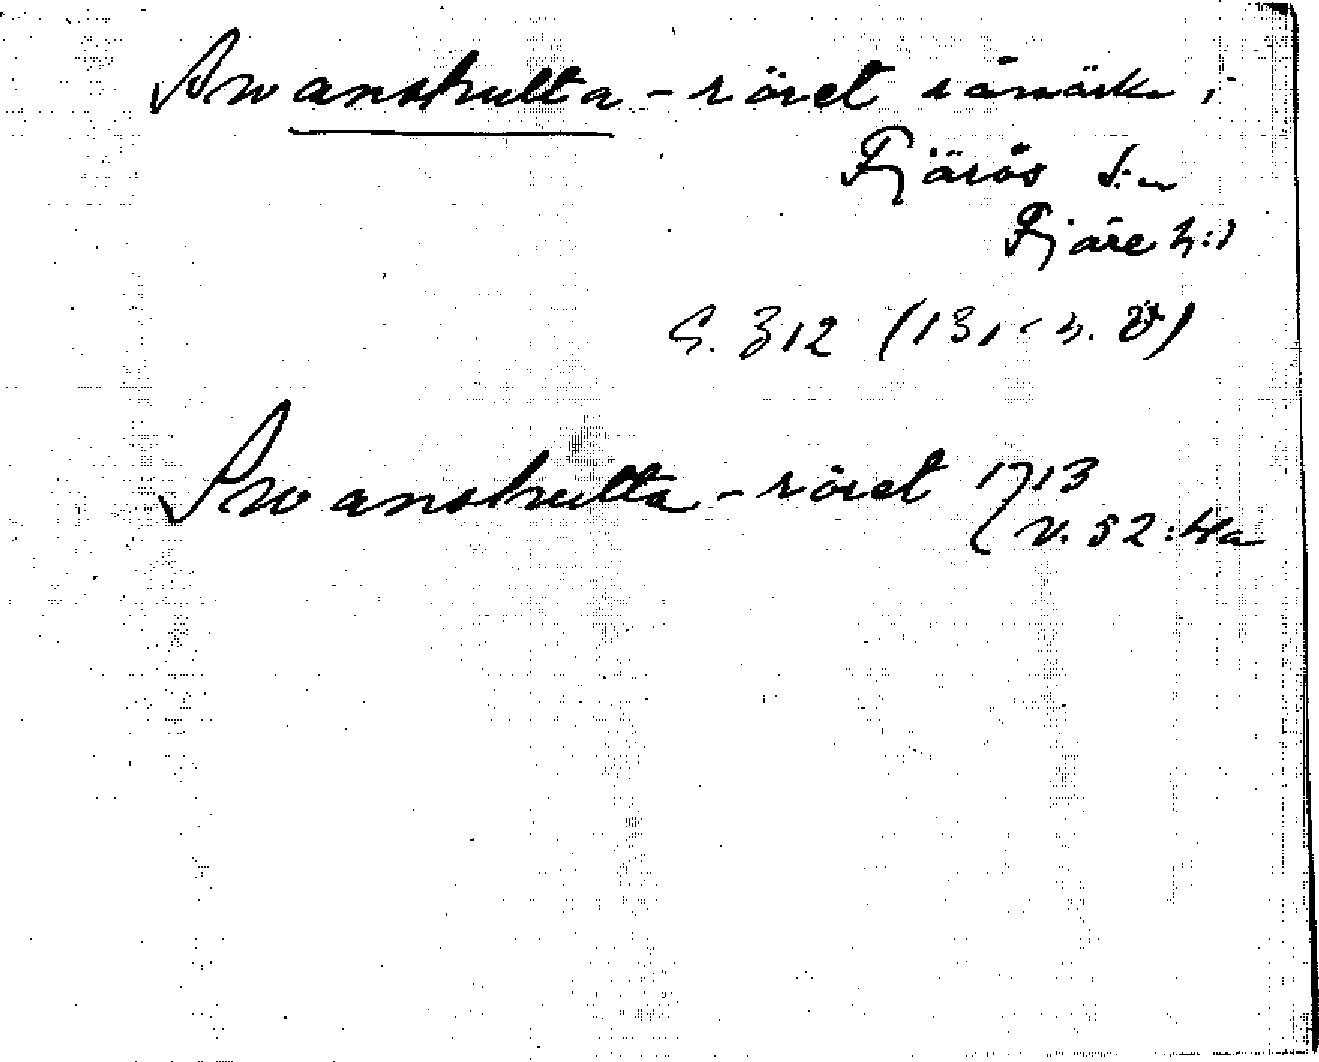 Swanshulta-röret råmärke i
Fjärås s:n
Fjäre h:d
S. 312 (131 - h. Ö)
Swanshulta-röret 1713
V. 52:4a